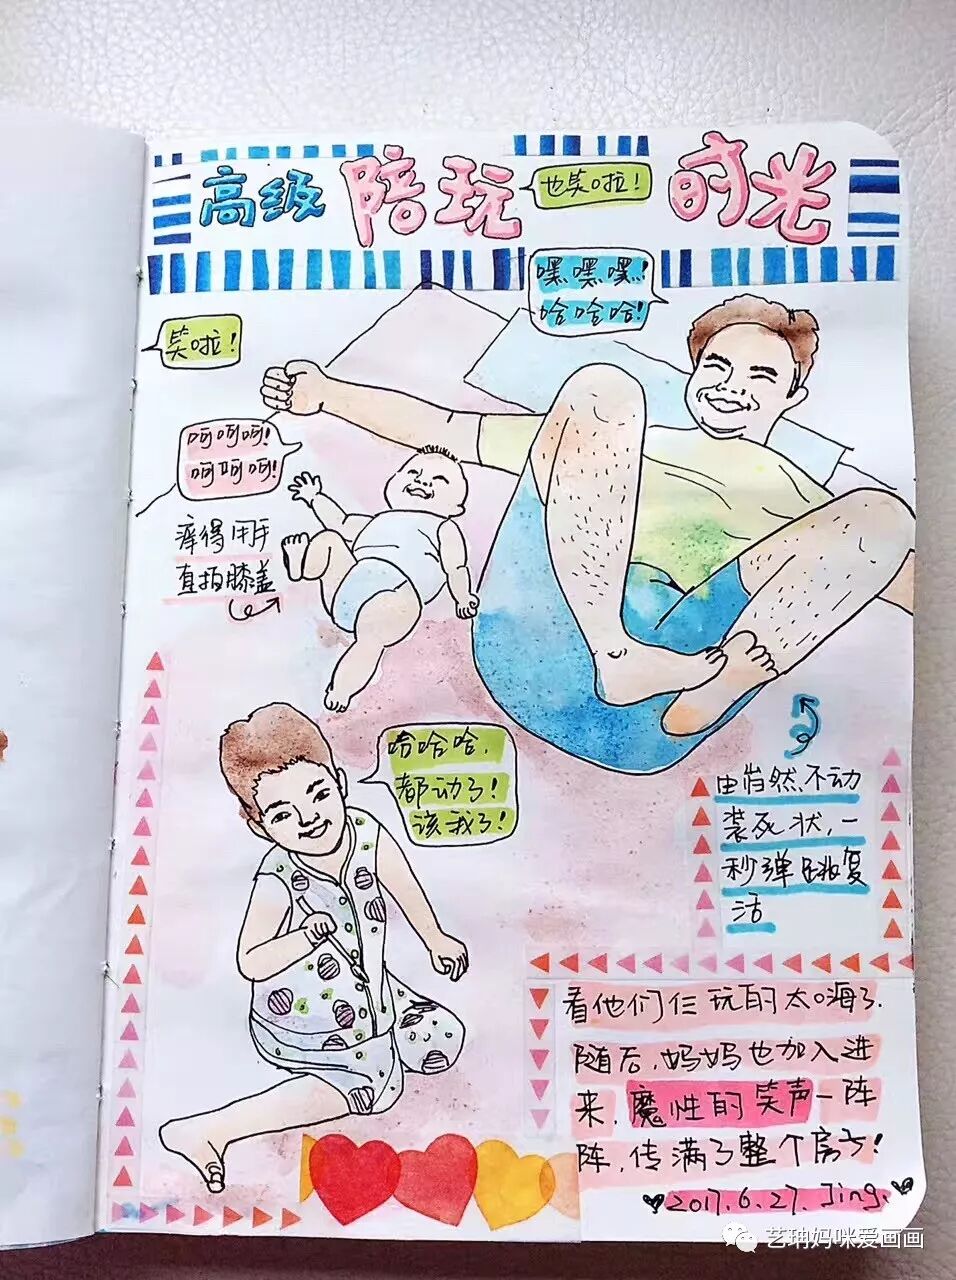 高级 陪玩 时光
也笑啦!
嘿嘿嘿!
哈哈哈!
笑啦!
呵呵呵!
呵呵呵!
痒得用手
直拍膝盖
哈哈哈,
都动了!
该我了!
由岿然不动
装死状,一
秒弹跳复
活
看他们仨玩的太嗨了.
随后,妈妈也加入进
来,魔性的笑声一阵
阵,传满了整个房子!
2017.6.27. Jing.
艺珃妈咪爱画画